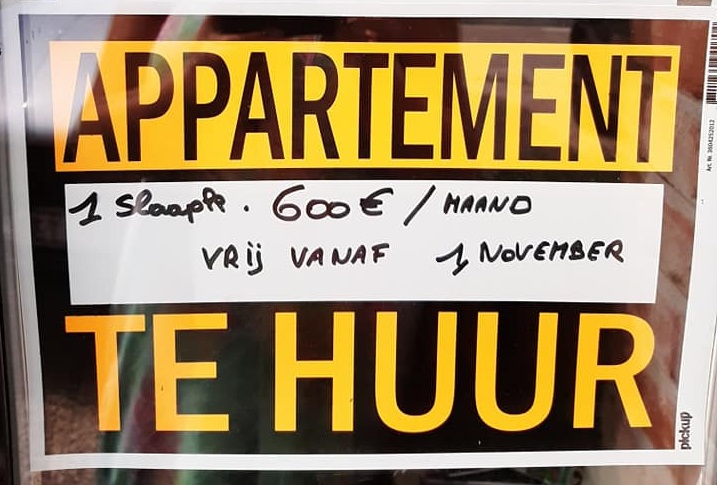 APPARTEMENT
1 Slaapk. 600€ / MAAND
VRIJ VANAF 1 NOVEMBER
TE HUUR
pickup
Art. Nr. 3604252012